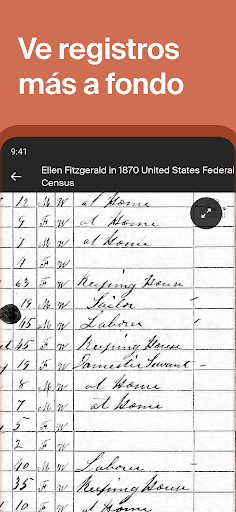 Ve registros
más a fondo
9:41
Ellen Fitzgerald in 1870 United States Federal
Census
12 M W at Home
9 F W at Home
7 M W at Home
4 F W
63 F W Keeping House
19 M W Sailor
45 M W Laborer
45 F W Keeping House
19 F W Domestic Servant
8 M W at Home
7 M W at Home
5 F W
2 F W
40 M W Laborer
35 F W Keeping House
10 F W at Home